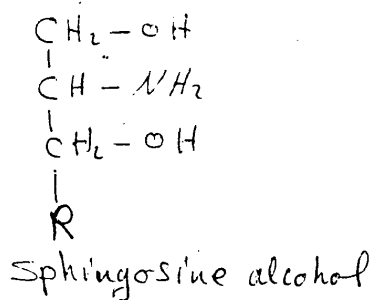 CH₂ - OH
CH - NH₂
CH₂ - OH
R
Sphingosine alcohol